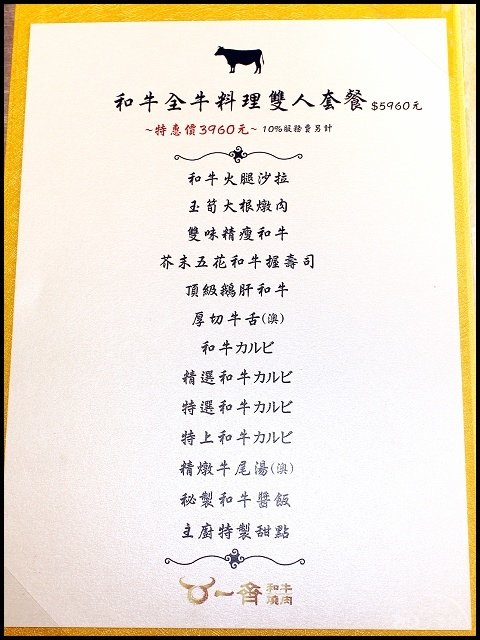 和牛全牛料理雙人套餐 $5960元
~特惠價3960元~ 10%服務費另計
和牛火腿沙拉
玉荀大根燉肉
雙味精瘦和牛
芥末五花和牛握壽司
頂級鵝肝和牛
厚切牛舌(澳)
和牛カルビ
精選和牛カルビ
特選和牛カルビ
特上和牛カルビ
精燉牛尾湯(澳)
秘製和牛醬飯
主廚特製甜點
一齊 和牛燒肉